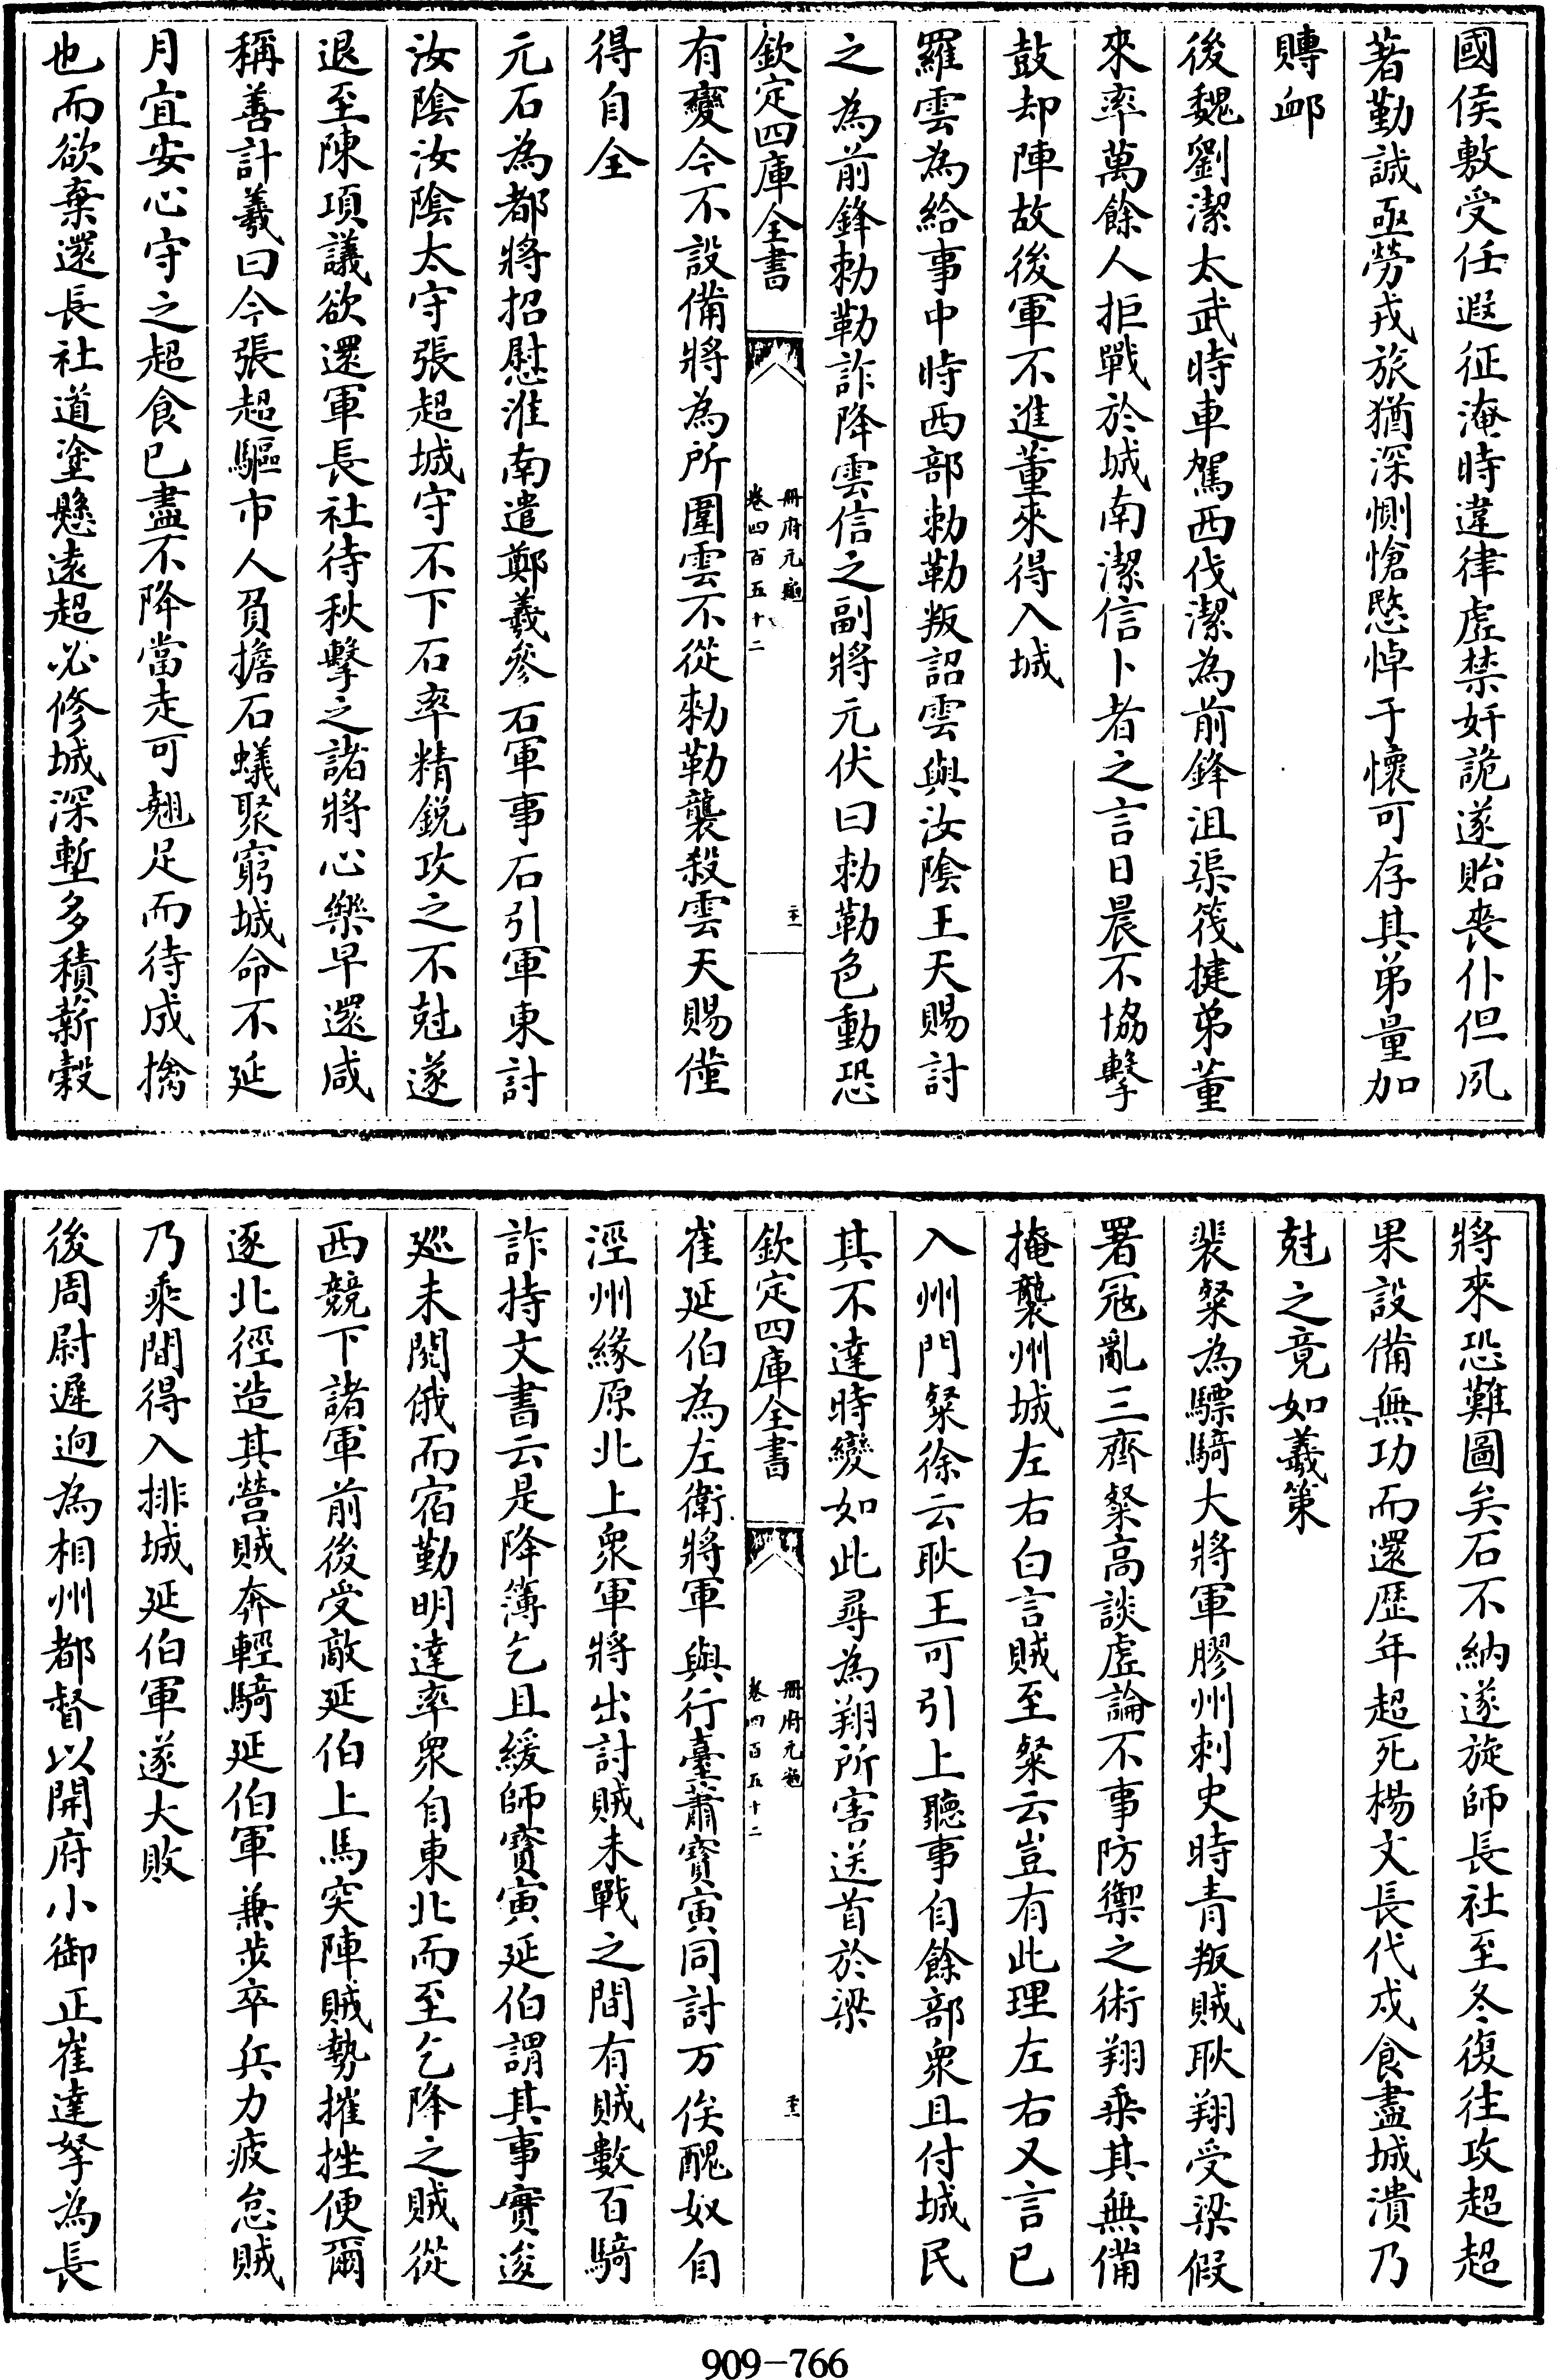 國侯敷受任遐征淹時違律虛禁奸詭遂貽喪仆但夙
著勤誠亟勞戎旅猶深惻愴愍悼于懷可存其弟量加
賻䘏
後魏劉潔太武時車駕西伐潔為前鋒沮渠茂揵弟董
來率萬餘人拒戰於城南潔信卜者之言日晨不協擊
鼓却陣故後軍不進董來得入城
羅雲為給事中時西部勅勒叛詔雲與汝陰王天賜討
之為前鋒勅勒詐降雲信之副將元伏曰勅勒色動恐
欽定四庫全書
冊府元龜
卷四百五十二
有變今不設備將為所圍雲不從勅勒襲殺雲天賜僅
得自全
元石為都將招慰淮南遣鄭羲參石軍事石引軍東討
汝陰汝陰太守張超城守不下石率精銳攻之不尅遂
退至陳項議欲還軍長社待秋擊之諸將心樂早還咸
稱善計羲曰今張超驅市人負擔石蟻聚窮城命不延
月宜安心守之超食已盡不降當走可翹足而待成擒
也而欲棄還長社道塗懸遠超必修城深塹多積薪穀
將來恐難圖矣石不納遂旋師長社至冬復往攻超超
果設備無功而還歷年超死楊文長代戍食盡城潰乃
尅之竟如羲策
裴粲為驃騎大將軍膠州刺史時青叛賊耿翔受梁假
署冦亂三齊粲高談虛論不事防禦之術翔乘其無備
掩襲州城左右白言賊至粲云豈有此理左右又言已
入州門粲徐云耿王可引上聽事自餘部衆且付城民
其不達時變如此尋為翔所害送首於梁
欽定四庫全書
冊府元龜
卷四百五十二
崔延伯為左衛將軍與行臺蕭寶寅同討万俟醜奴自
涇州緣原北上衆軍將出討賊未戰之間有賊數百騎
詐持文書云是降簿乞且緩師寶寅延伯謂其事實逡
廵未閱俄而宿勤明達率衆自東北而至乞降之賊從
西競下諸軍前後受敵延伯上馬突陣賊勢摧挫便爾
逐北徑造其營賊奔輕騎延伯軍兼步卒兵力疲怠賊
乃乘間得入排城延伯軍遂大敗
後周尉遲迥為相州都督以開府小御正崔達拏為長
909-766